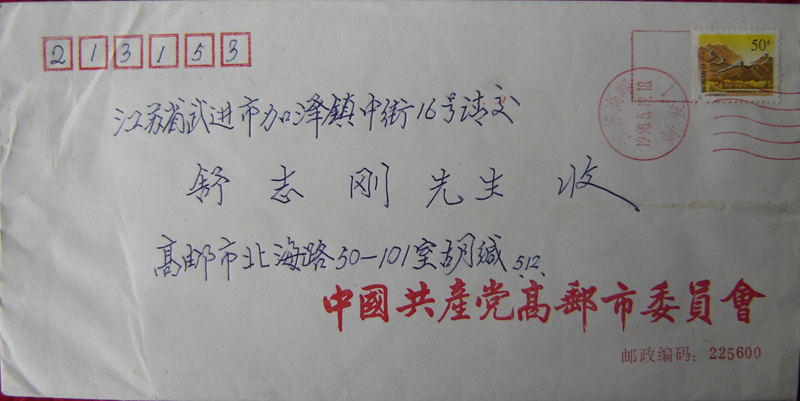 213153
50分
江苏省武进市加泽镇中街16号请交
舒志刚先生 收
高邮市北海路50-101室胡缄 5.12.
中國共產党高郵市委員會
邮政编码：225600